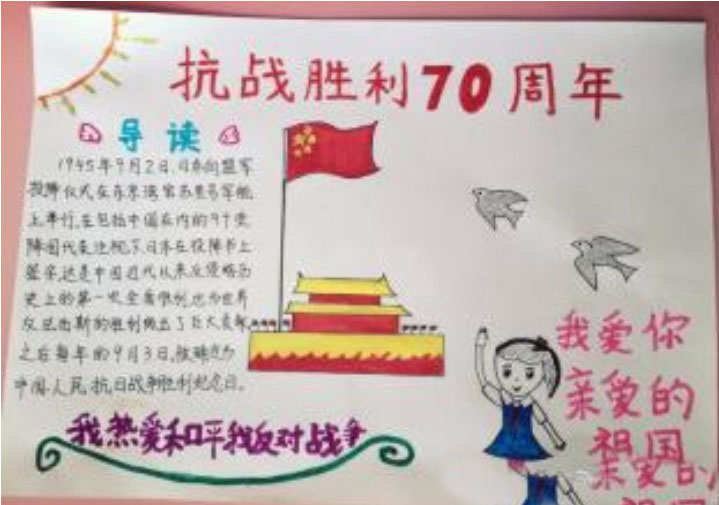 抗战胜利70周年
导读
1945年9月2日,日本向盟军
投降仪式在东京湾密苏里号军舰
上举行,在包括中国在内的9个受
降国代表注视下,日本在投降书上
签字,这是中国近代以来反侵略历
史上的第一次全面胜利,也为世界
反法西斯的胜利做出了巨大贡献,
之后每年的9月3日,被确定为
中国人民抗日战争胜利纪念日。
我热爱和平我反对战争
我爱你
亲爱的
祖国
亲爱的
祖国